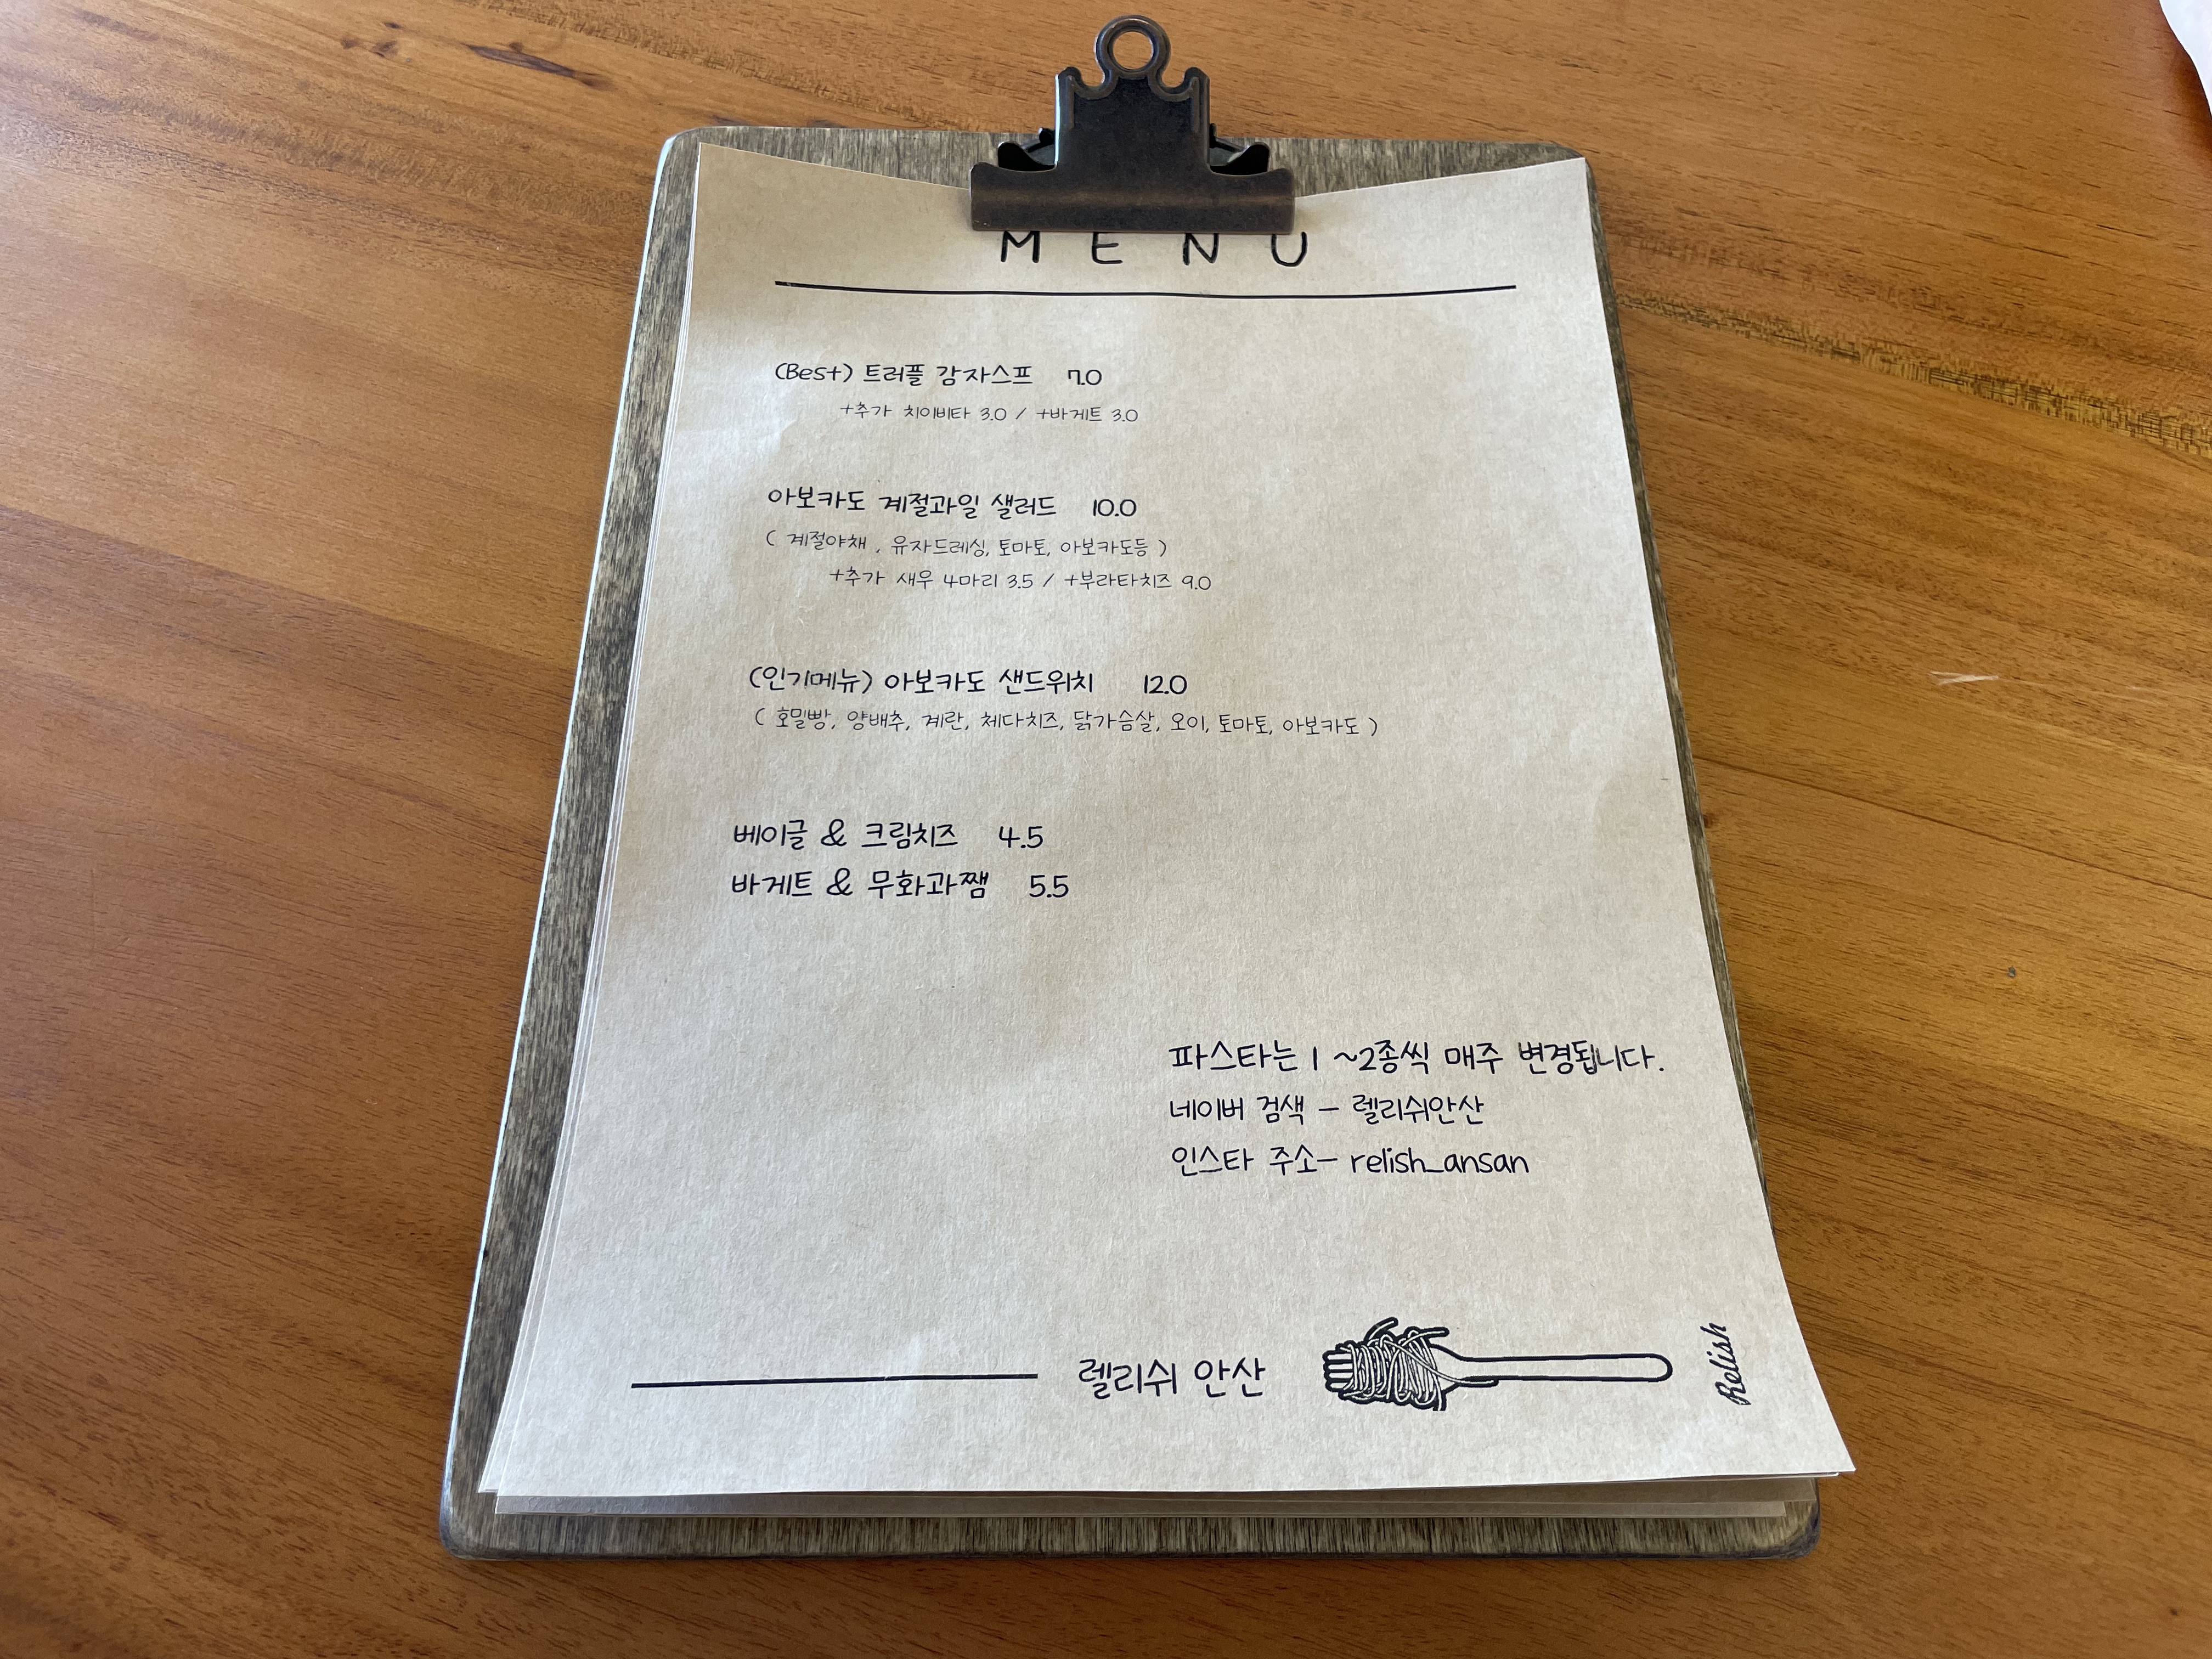 MENU
(Best) 트러플 감자스프 7.0
+추가 치아비타 3.0 / +바게트 3.0
아보카도 계절과일 샐러드 10.0
( 계절야채, 유자드레싱, 토마토, 아보카도등 )
+추가 새우 4마리 3.5 / +부라타치즈 9.0
(인기메뉴) 아보카도 샌드위치 12.0
( 호밀빵, 양배추, 계란, 체다치즈, 닭가슴살, 오이, 토마토, 아보카도 )
베이글 & 크림치즈 4.5
바게트 & 무화과쨈 5.5
파스타는 1 ~2종씩 매주 변경됩니다.
네이버 검색 - 렐리쉬안산
인스타 주소- relish_ansan
렐리쉬 안산
Relish